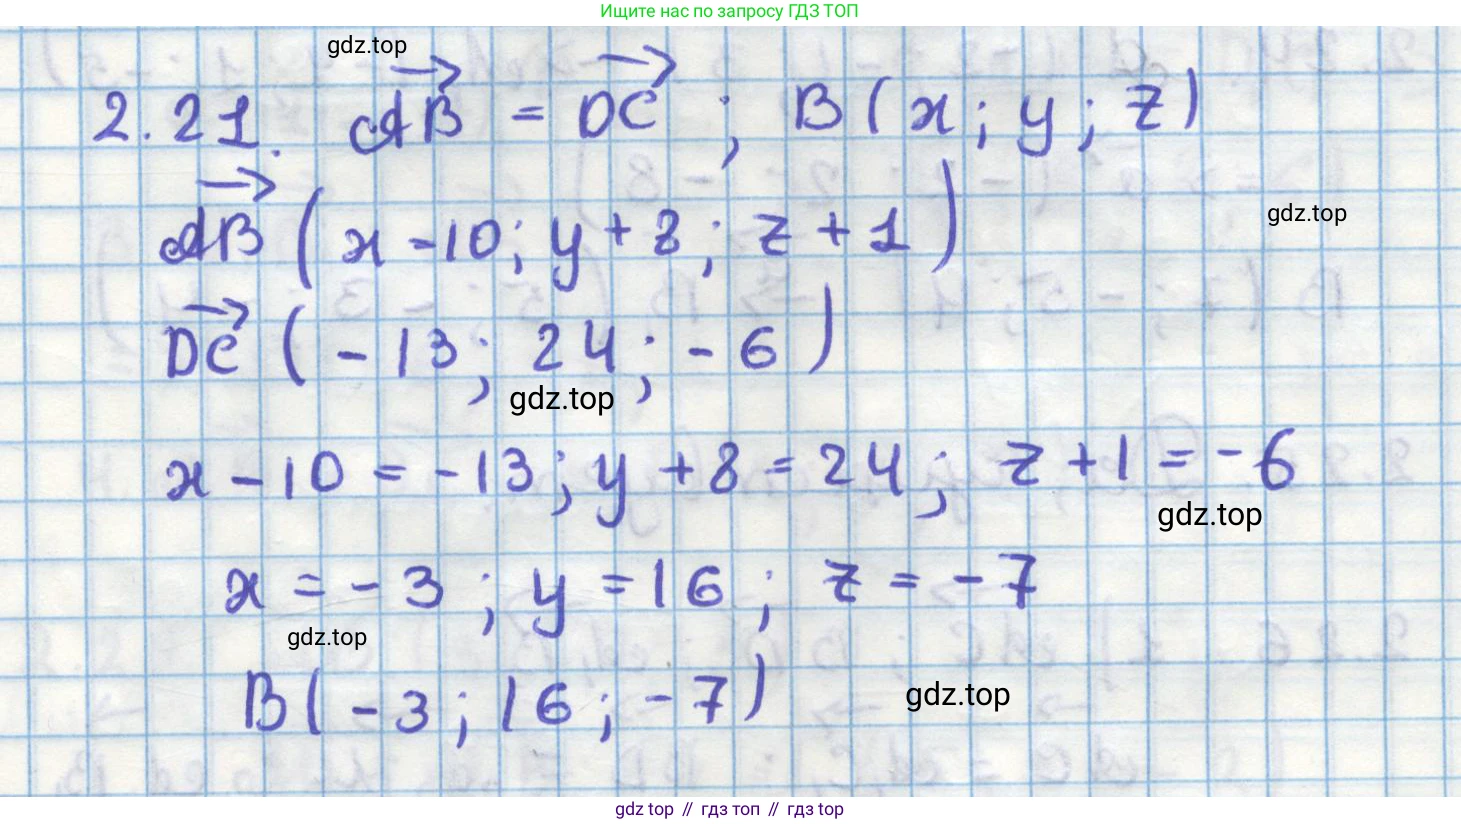 Ищите нас по запросу ГДЗ ТОП
gdz.top
2.21. AB = DC ; B ( x ; y ; z )
AB ( x - 10 ; y + 8 ; z + 1 )
gdz.top
DC ( - 13 ; 24 ; - 6 )
gdz.top
x - 10 = - 13 ; y + 8 = 24 ; z + 1 = - 6
gdz.top
x = - 3 ; y = 16 ; z = - 7
gdz.top
B ( - 3 ; 16 ; - 7 )
gdz.top
gdz top // гдз топ // гдз top